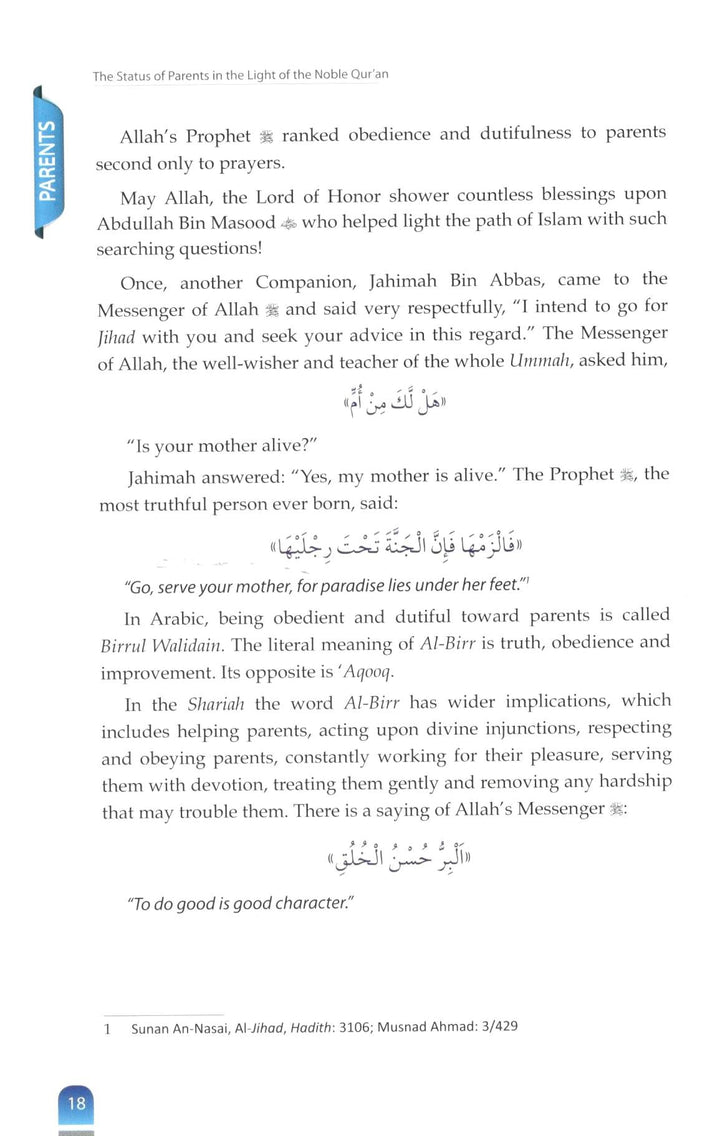 The Status of Parents in the Light of the Noble Qur'an
PARENTS
Allah's Prophet ﷺ ranked obedience and dutifulness to parents
second only to prayers.
May Allah, the Lord of Honor shower countless blessings upon
Abdullah Bin Masood who helped light the path of Islam with such
searching questions!
Once, another Companion, Jahimah Bin Abbas, came to the
Messenger of Allah ﷺ and said very respectfully, "I intend to go for
Jihad with you and seek your advice in this regard." The Messenger
of Allah, the well-wisher and teacher of the whole Ummah, asked him,
«هَلْ لَّكَ مِنْ أُمٍّ»
"Is your mother alive?"
Jahimah answered: "Yes, my mother is alive." The Prophet ﷺ, the
most truthful person ever born, said:
«فَالْزَمْهَا فَإِنَّ الْجَنَّةَ تَحْتَ رِجْلَيْهَا»
"Go, serve your mother, for paradise lies under her feet."1
In Arabic, being obedient and dutiful toward parents is called
Birrul Walidain. The literal meaning of Al-Birr is truth, obedience and
improvement. Its opposite is 'Aqooq.
In the Shariah the word Al-Birr has wider implications, which
includes helping parents, acting upon divine injunctions, respecting
and obeying parents, constantly working for their pleasure, serving
them with devotion, treating them gently and removing any hardship
that may trouble them. There is a saying of Allah's Messenger ﷺ:
«اَلْبِرُّ حُسْنُ الْخُلُقِ»
"To do good is good character."
1 Sunan An-Nasai, Al-Jihad, Hadith: 3106; Musnad Ahmad: 3/429
18